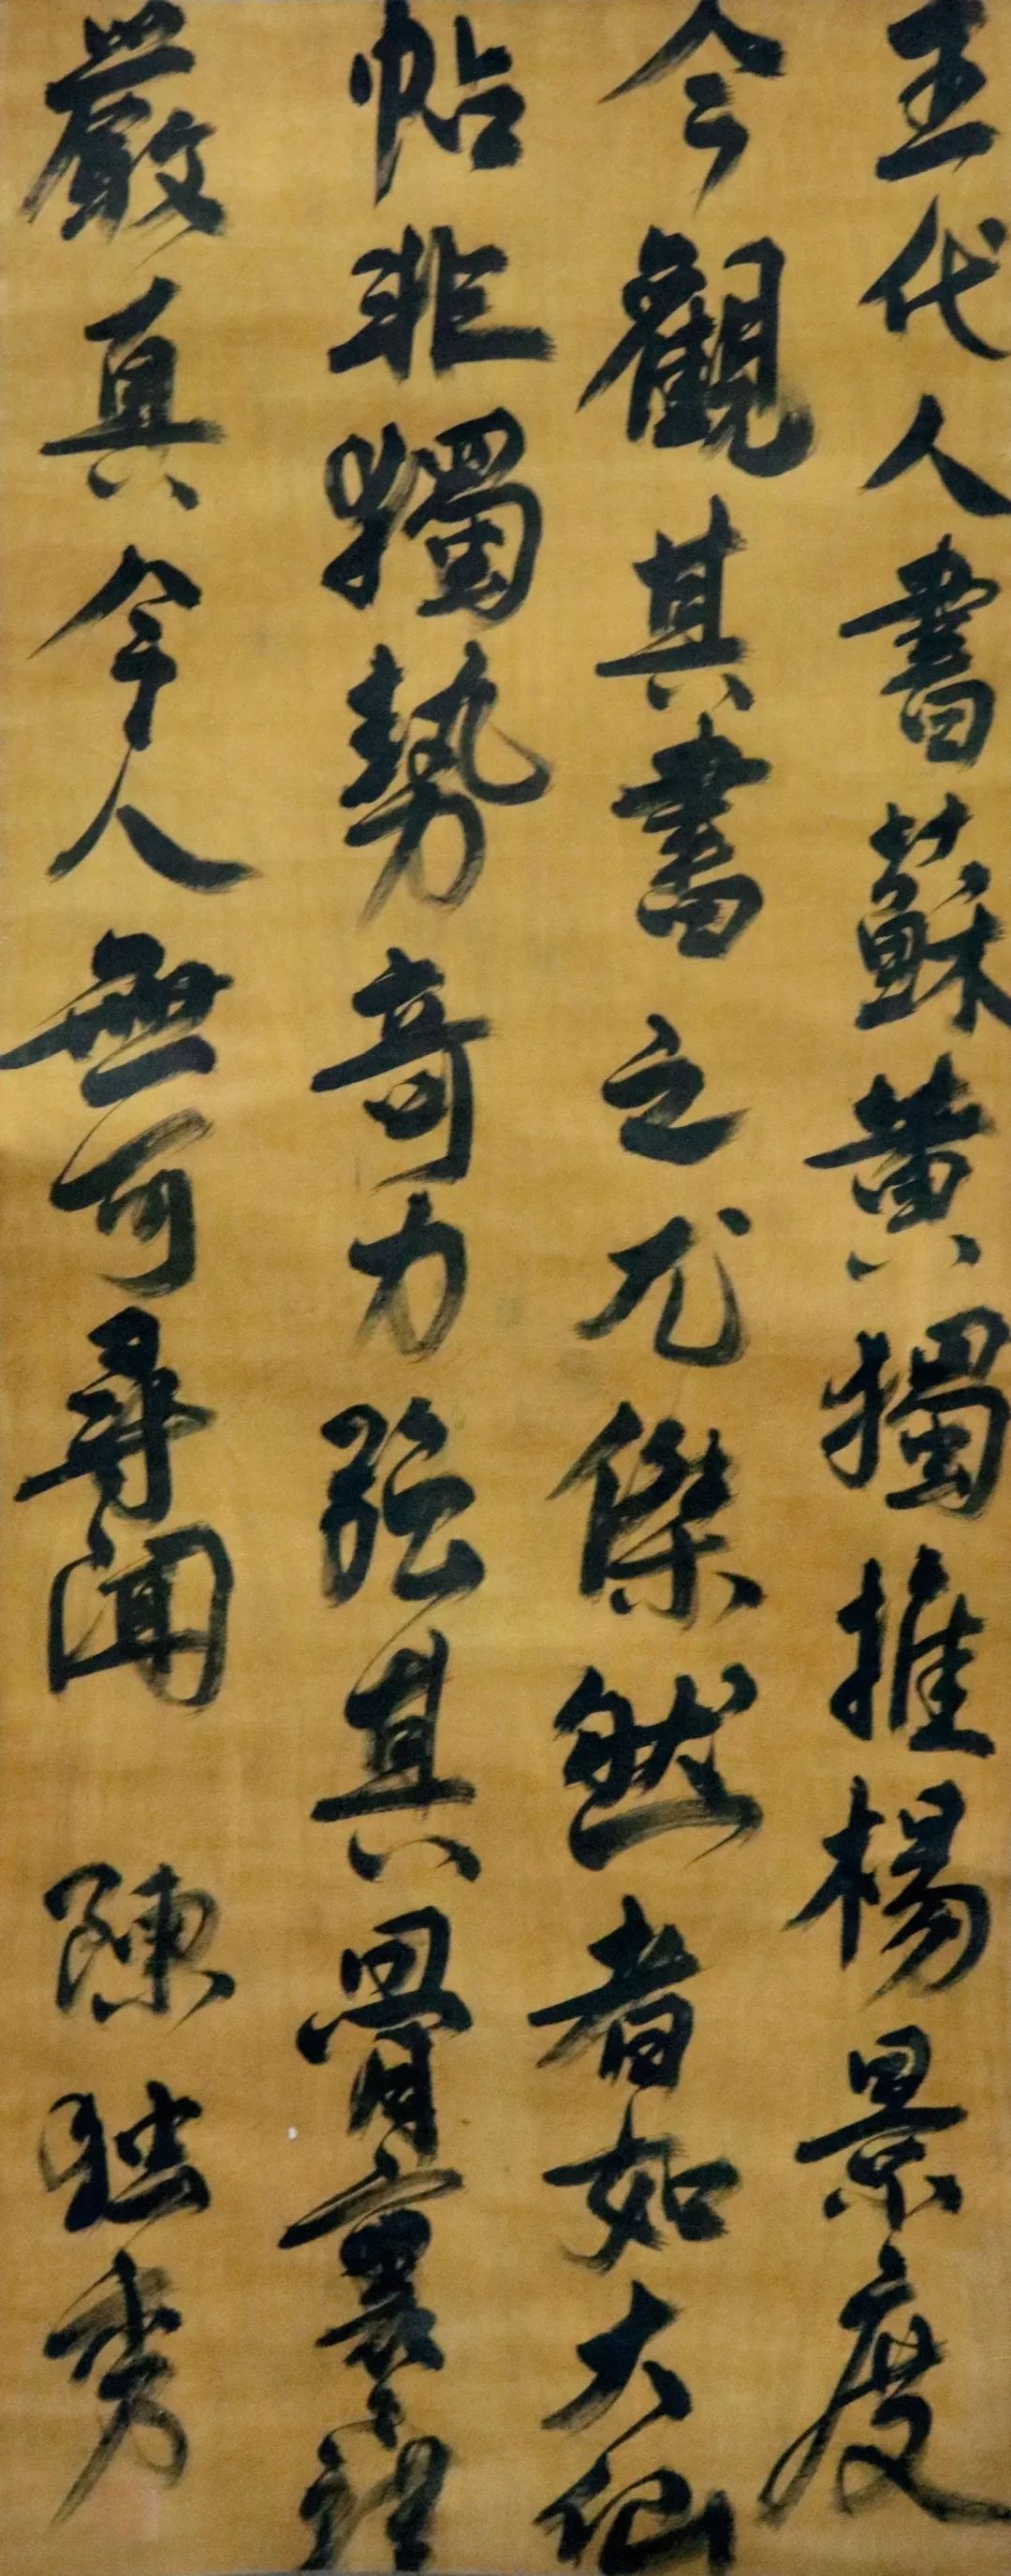 五代人書蘇黄獨推楊景度
今觀其書之尤傑然者如大仙
帖非獨勢奇力强其骨裏謹
嚴真令人無可尋間
陳独秀